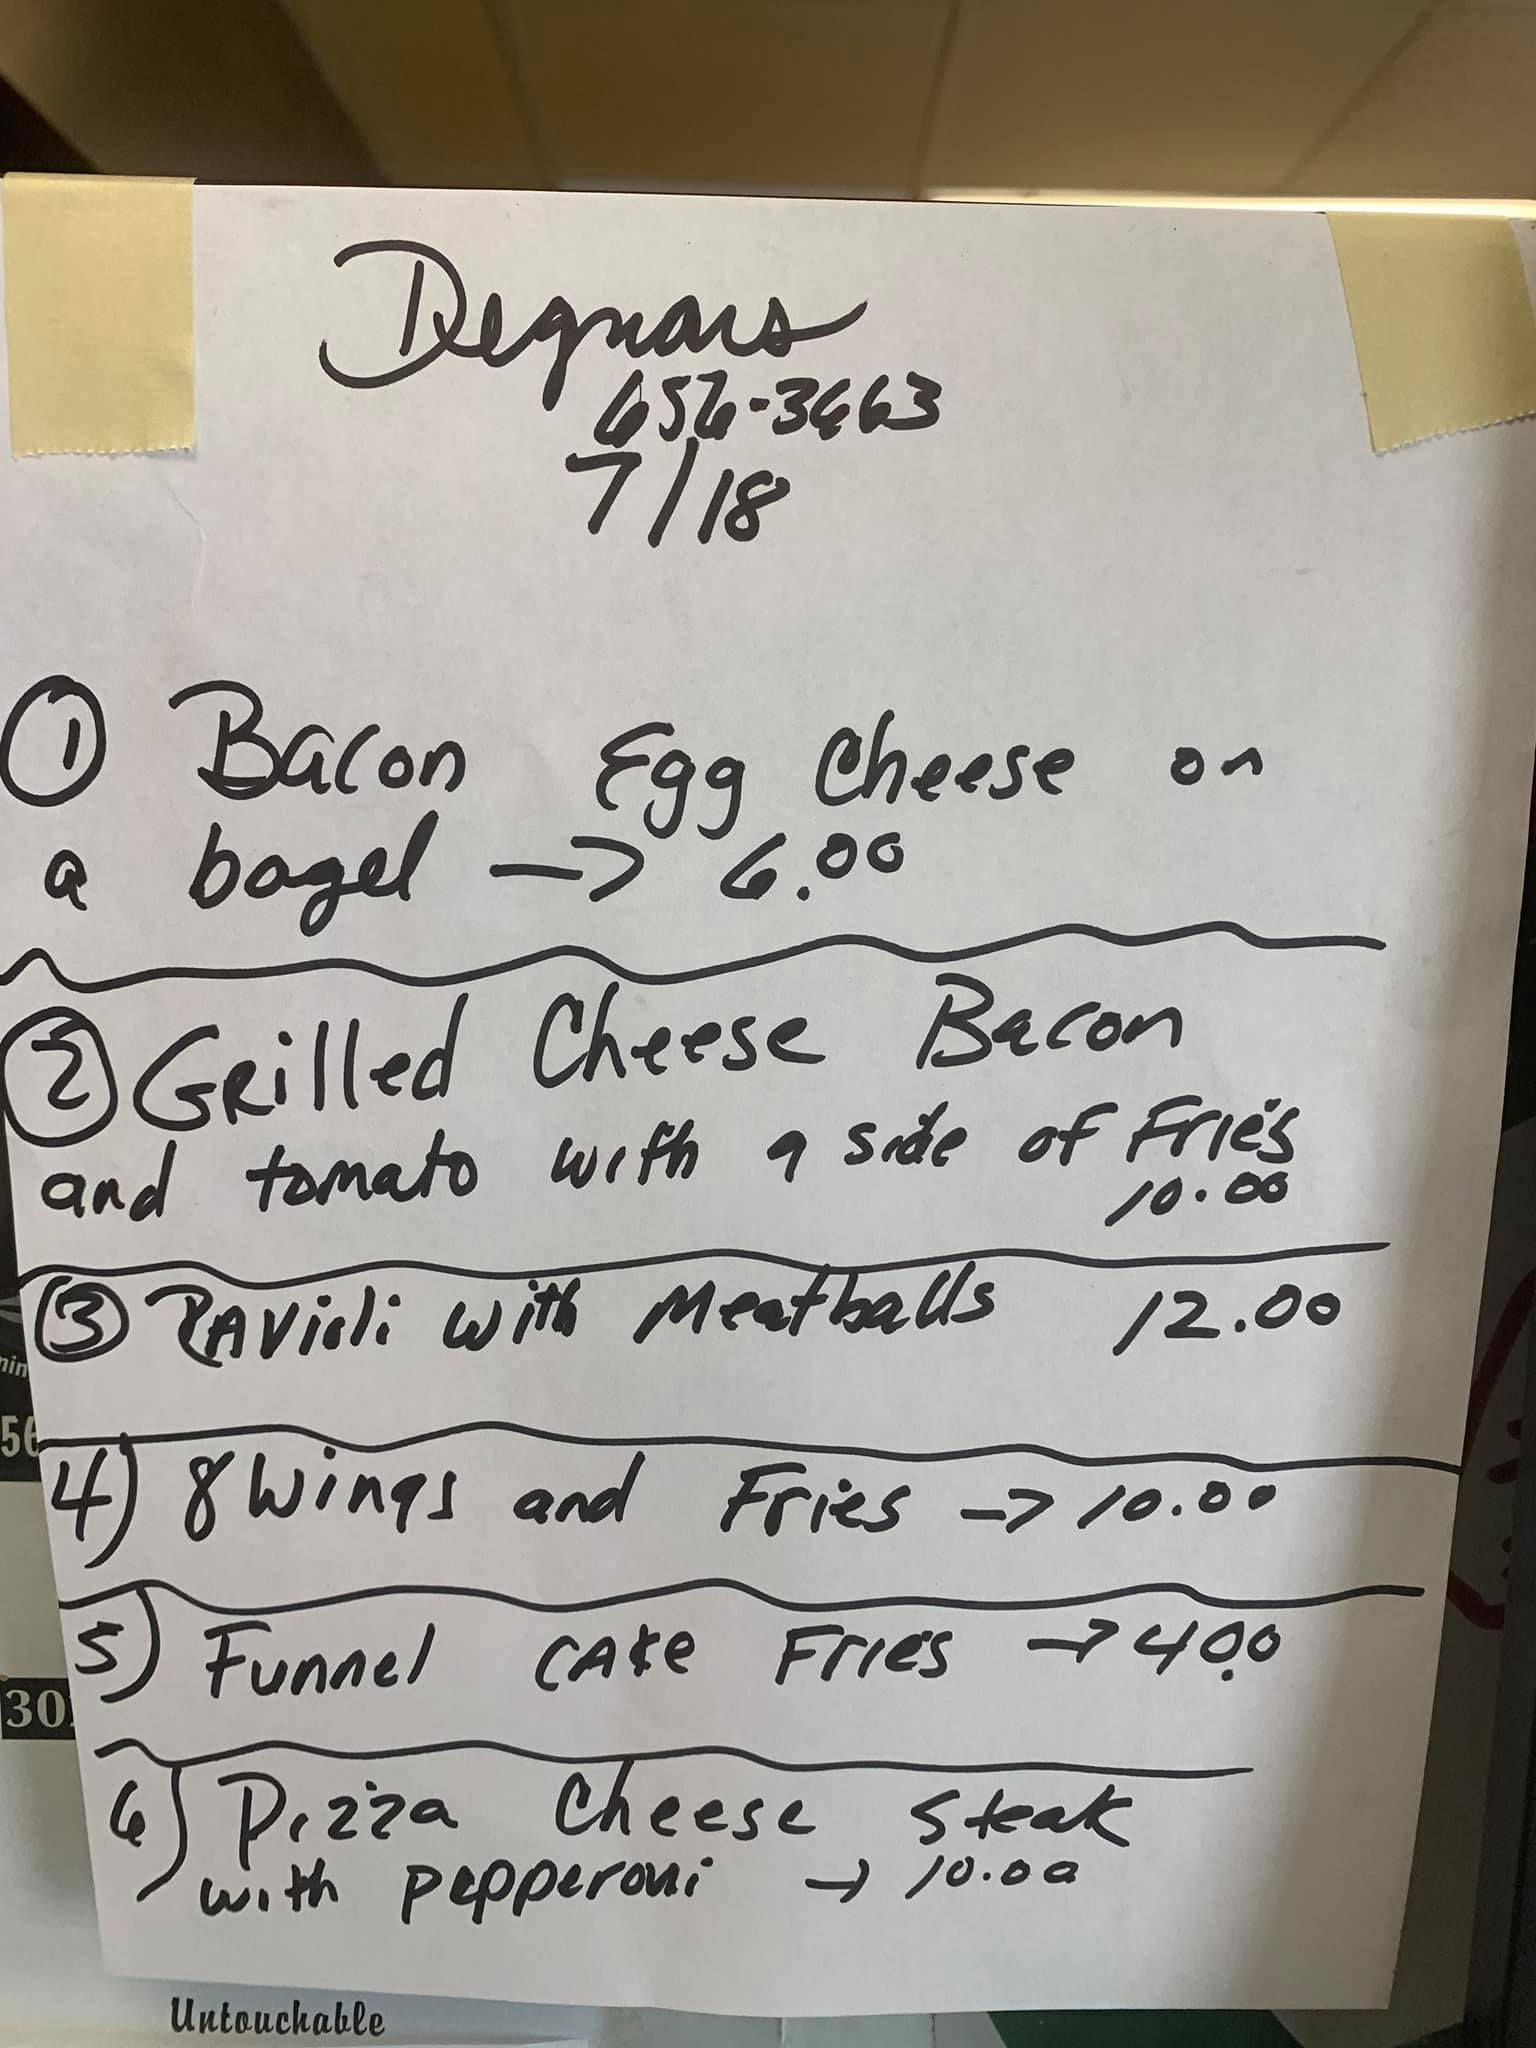 Degnars
656-3663
7/18
1 Bacon Egg Cheese on
a bagel -> 6.00
2 Grilled Cheese Bacon
and tomato with a side of Fries
10.00
3 Ravioli with Meatballs 12.00
4) 8 Wings and Fries -> 10.00
5) Funnel cake Fries -> 4.00
6) Pizza Cheese Steak
with pepperoni -> 10.00
56
30
Untouchable